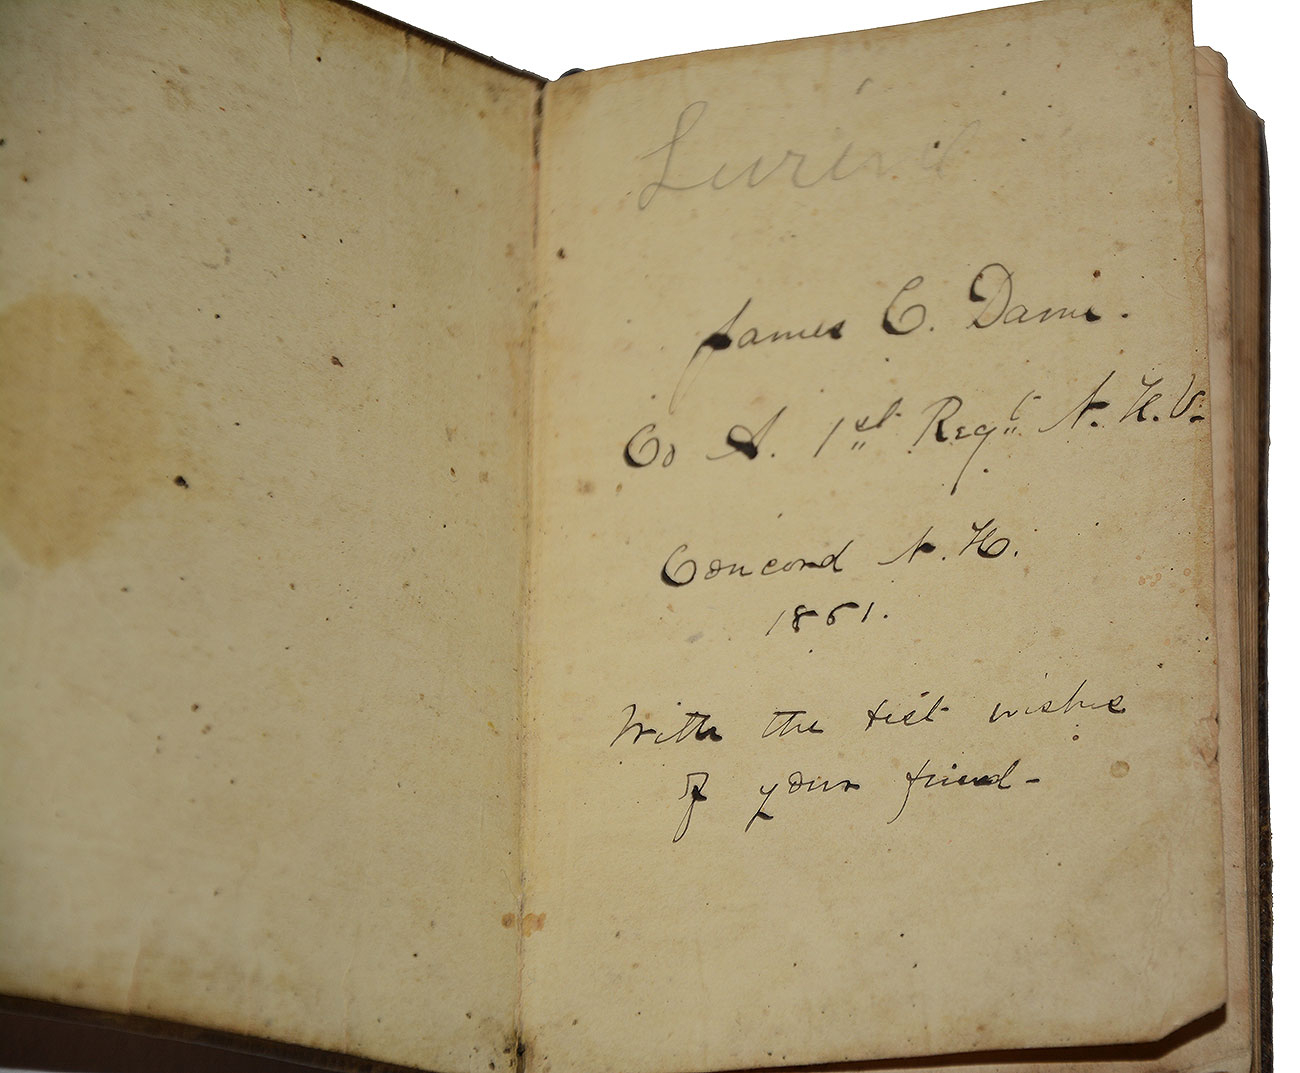 James C. Dame.
Co A. 1st Regt N. H. V.
Concord N. H.
1861.
With the best wishes
of your friend-